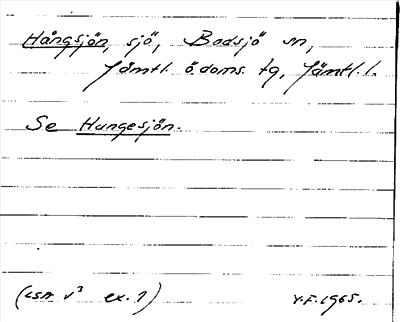 Hångsjön, sjö, Bodsjö sn,
Jämtl. ö.doms. tg, Jämtl. l.
Se Hungesjön.
(CSA v³ ex. 1) Y.F. 1965.